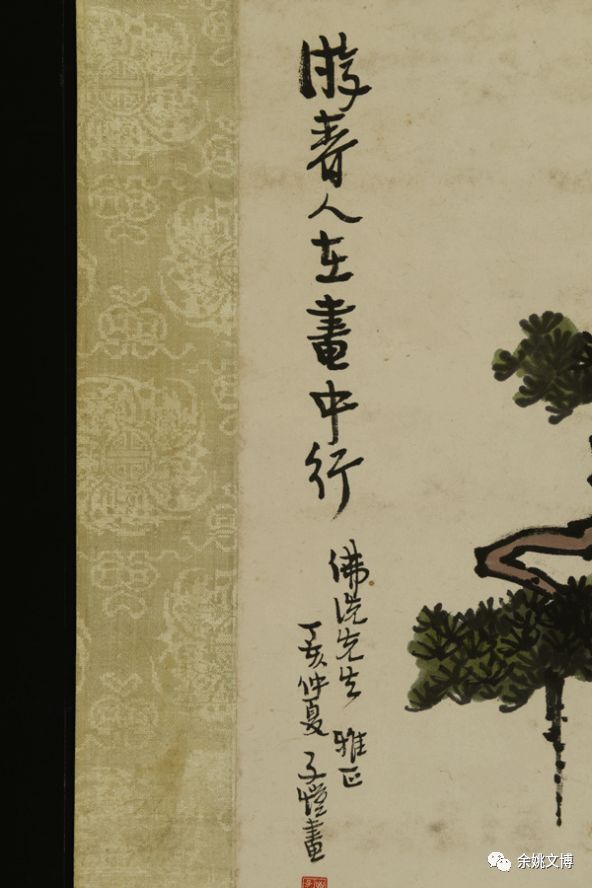 游春人在畫中行
佛先生 雅正
丁亥仲夏 子愷畫
余姚文博